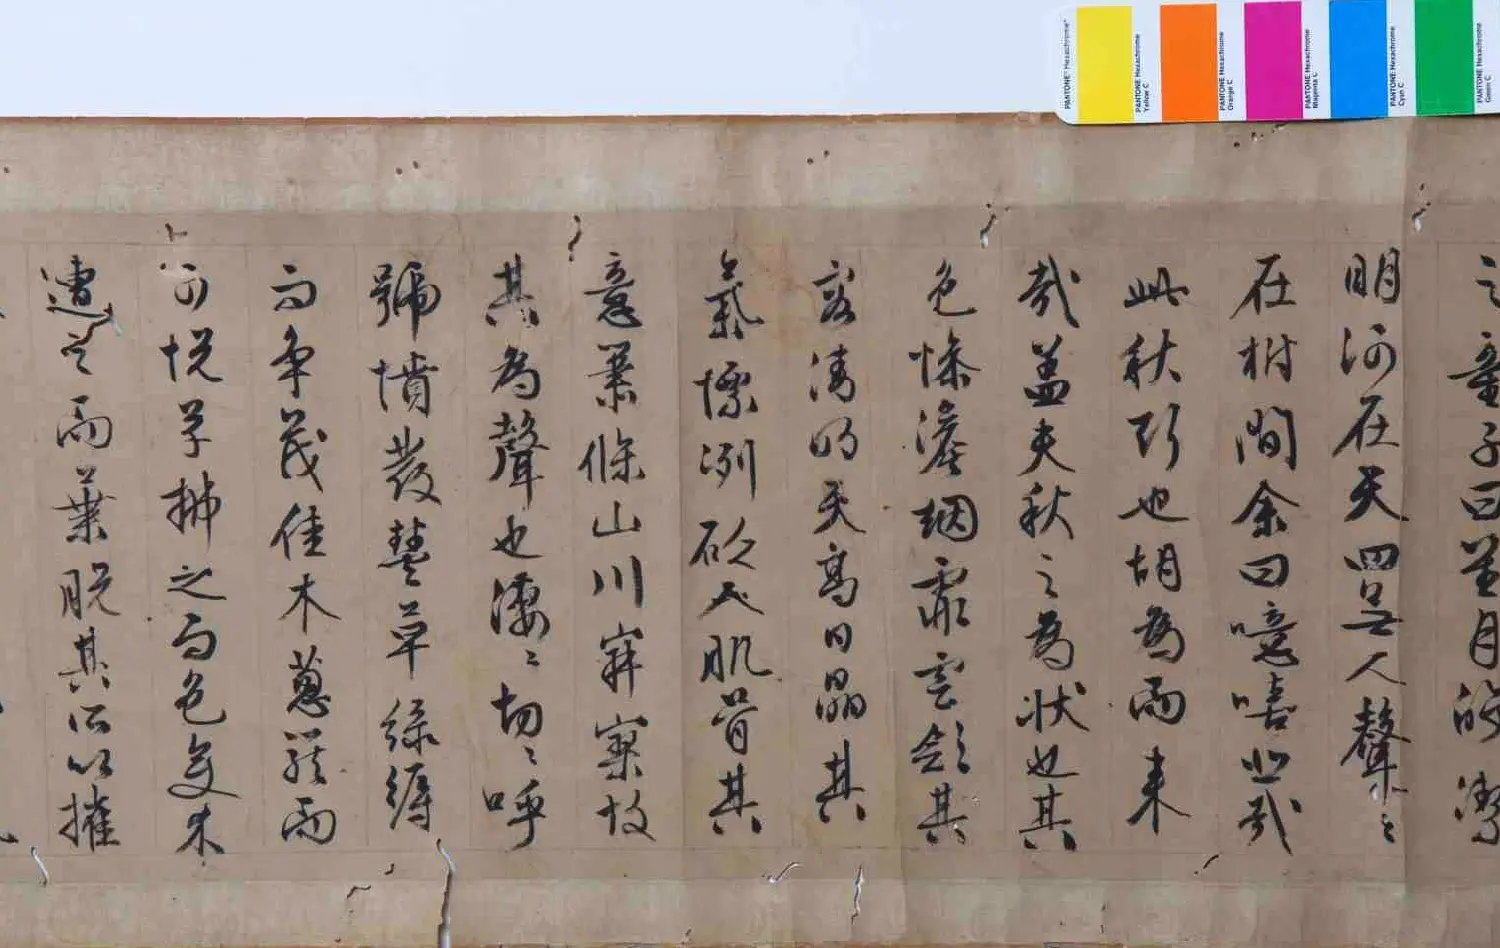 PANTONE® Hexachrome®
PANTONE Hexachrome Yellow C
PANTONE Hexachrome Orange C
PANTONE Hexachrome Magenta C
PANTONE Hexachrome Cyan C
PANTONE Hexachrome Green C
之童子曰星月皎潔
明河在天四無人聲〻
在樹間余曰噫嘻悲哉
此秋聲也胡為而来
哉盖夫秋之為狀也其
色慘澹烟霏雲斂其
容清明天高日晶其
氣慄冽砭人肌骨其
意蕭條山川寂寥故
其為聲也淒〻切〻呼
號憤發豐草綠縟
而爭茂佳木蔥蘢而
可悅草拂之而色變木
遭之而葉脫其所以摧